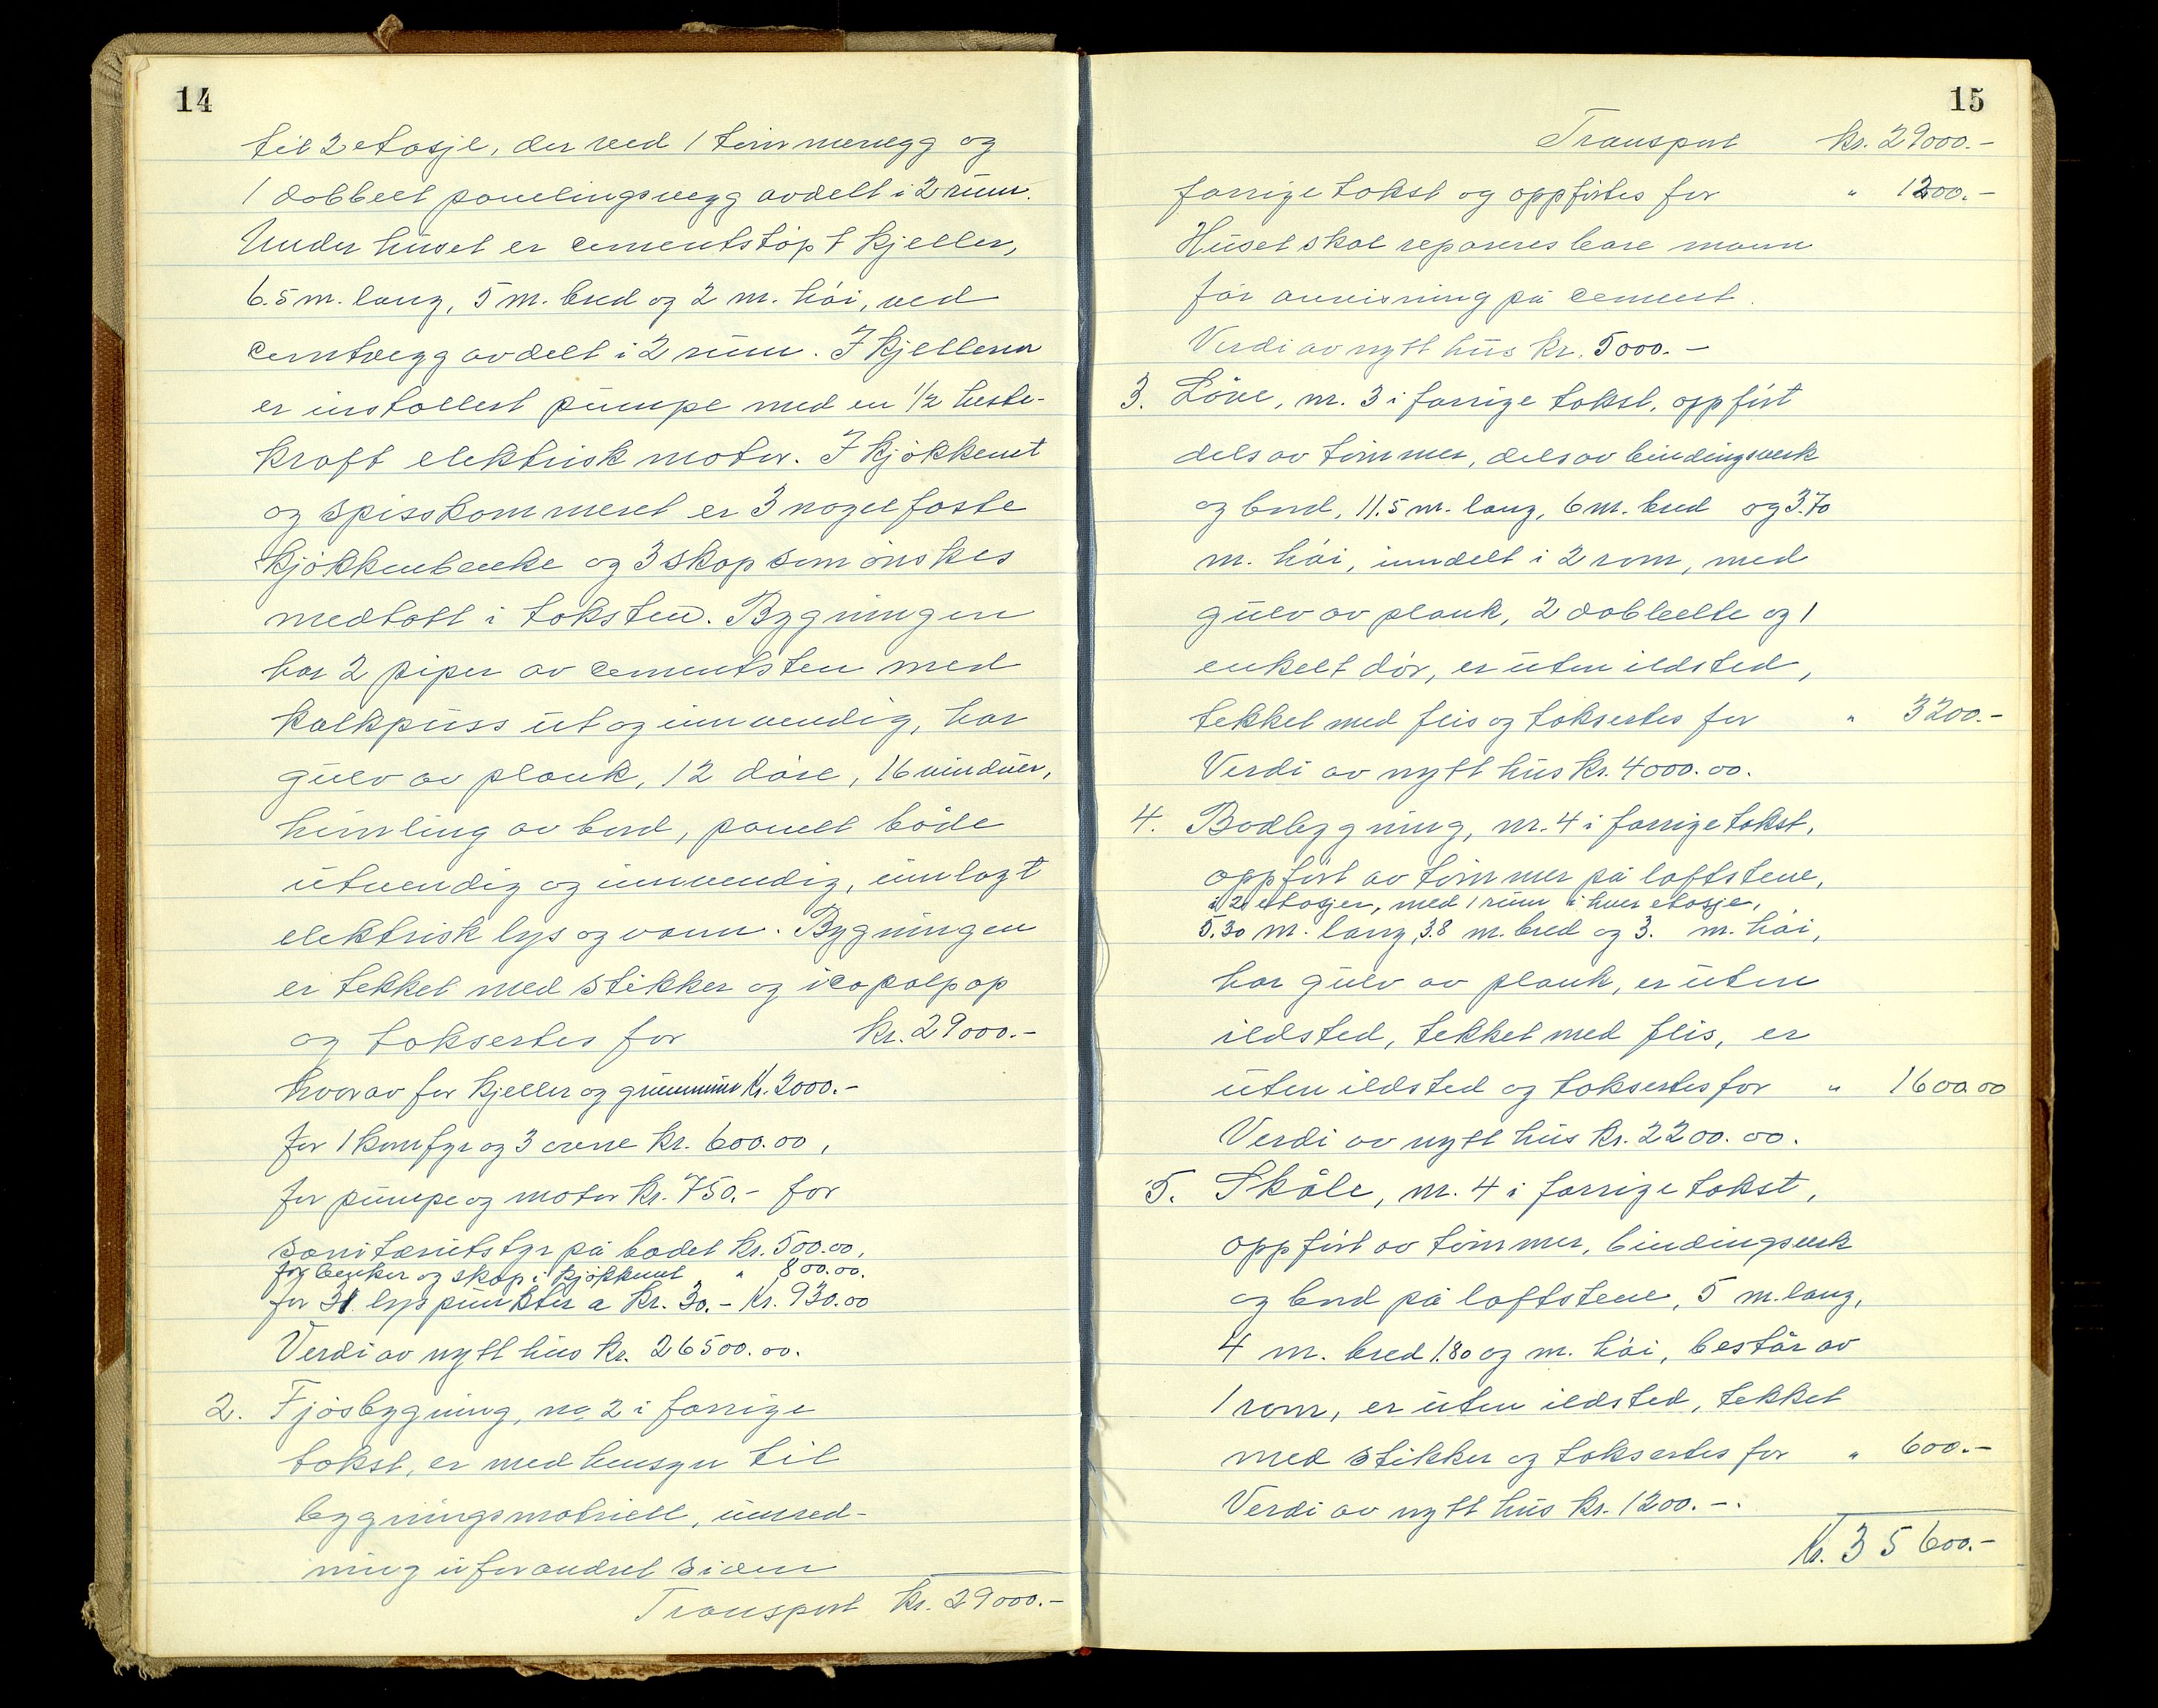 14
til 2 etasje, der ved 1 tømmervegg og
1 dobbelt panelingsvegg avdelt i 2 rum.
Under huset er cementstøpt kjeller,
6.5 m. lang, 5 m. bred og 2 m. høi, ved
cemtvegg avdelt i 2 rum. I kjelleren
er installert pumpe med en 1/2 heste-
kraft elektrisk motor. I kjøkkenet
og spisskammeret er 3 nagelfaste
kjøkkenbenke og 3 skap som ønskes
medtatt i taksten. Bygningen
har 2 piper av cementsten med
kalkpuss ut og innvendig, har
gulv av plank, 12 døre, 16 vinduer,
himling av bord, panelt både
utvendig og innvendig, innlagt
elektrisk lys og vann. Bygningen
er tekket med stikker og icopalpap
og taksertes for kr. 29000.-
hvorav for kjeller og grunnmur Kr. 2000.-
for 1 komfyr og 3 ovne kr. 600.00,
for pumpe og motor kr. 750.- for
sanitærutstyr på badet kr. 500.00,
for benker og skap i kjøkkenet " 800.00.
for 31 lyspunkter a kr. 30.- Kr. 930.00
Verdi av nytt hus kr. 26500.00.
2. Fjøsbygning, no 2 i forrige
takst, er med hensyn til
bygningsmatriell, innred-
ning uforandret siden
Transport kr. 29000.-
15
Transport kr. 29000.-
forrige takst og oppførtes for " 1200.-
Huset skal repareres bare mann
får anvisning på cement.
Verdi av nytt hus kr. 5000.-
3. Løve, nr. 3 i forrige takst, oppført
dels av tømmer, dels av bindingsverk
og bord, 11.5 m. lang, 6 m. bred og 3.70
m. høi, inndelt i 2 rom, med
gulv av plank, 2 dobbelte og 1
enkelt dør, er uten ildsted,
tekket med flis og taksertes for " 3200.-
Verdi av nytt hus kr. 4000.00.
4. Bodbygning, nr. 4 i forrige takst,
oppført av tømmer på loftstene,
i 2 etasjer, med 1 rum i hver etasje,
5.30 m. lang, 3.8 m. bred og 3. m. høi,
har gulv av plank, er uten
ildsted, tekket med flis, er
uten ildsted og taksertes for " 1600.00
Verdi av nytt hus kr. 2200.00.
5. Skåle, nr. 4 i forrige takst,
oppført av tømmer, bindingsverk
og bord på loftstene, 5 m. lang,
4 m. bred 1.80 og m. høi, består av
1 rom, er uten ildsted, tekket
med stikker og taksertes for " 600.-
Verdi av nytt hus kr. 1200.-.
Kr. 35600.-